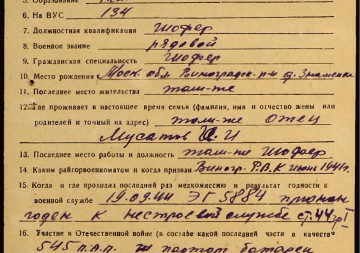 6. На ВУС 134
7. Должностная квалификация шофер
8. Военное звание рядовой
9. Гражданская специальность шофер
10. Место рождения Моск. обл. Виноградск. р-н д. Знаменка
11. Последнее место жительства там-же
12. Где проживает в настоящее время семья (фамилия, имя и отчество жены или
родителей и точный на адрес) там-же отец
Мусатов И
13. Последнее место работы и должность там-же шофер
14. Каким райгорвоенкоматом и когда призван Виногр. Р.В.К июнь 1941г.
15. Когда и где проходил последний раз медкомиссию и результат годности к
военной службе 19.09.44 ЭГ 5884 признан
годен к нестроевой службе ст. 44 гр I
16. Участие в Отечественной войне (в составе какой последней части в качест-
545 п.А.П.